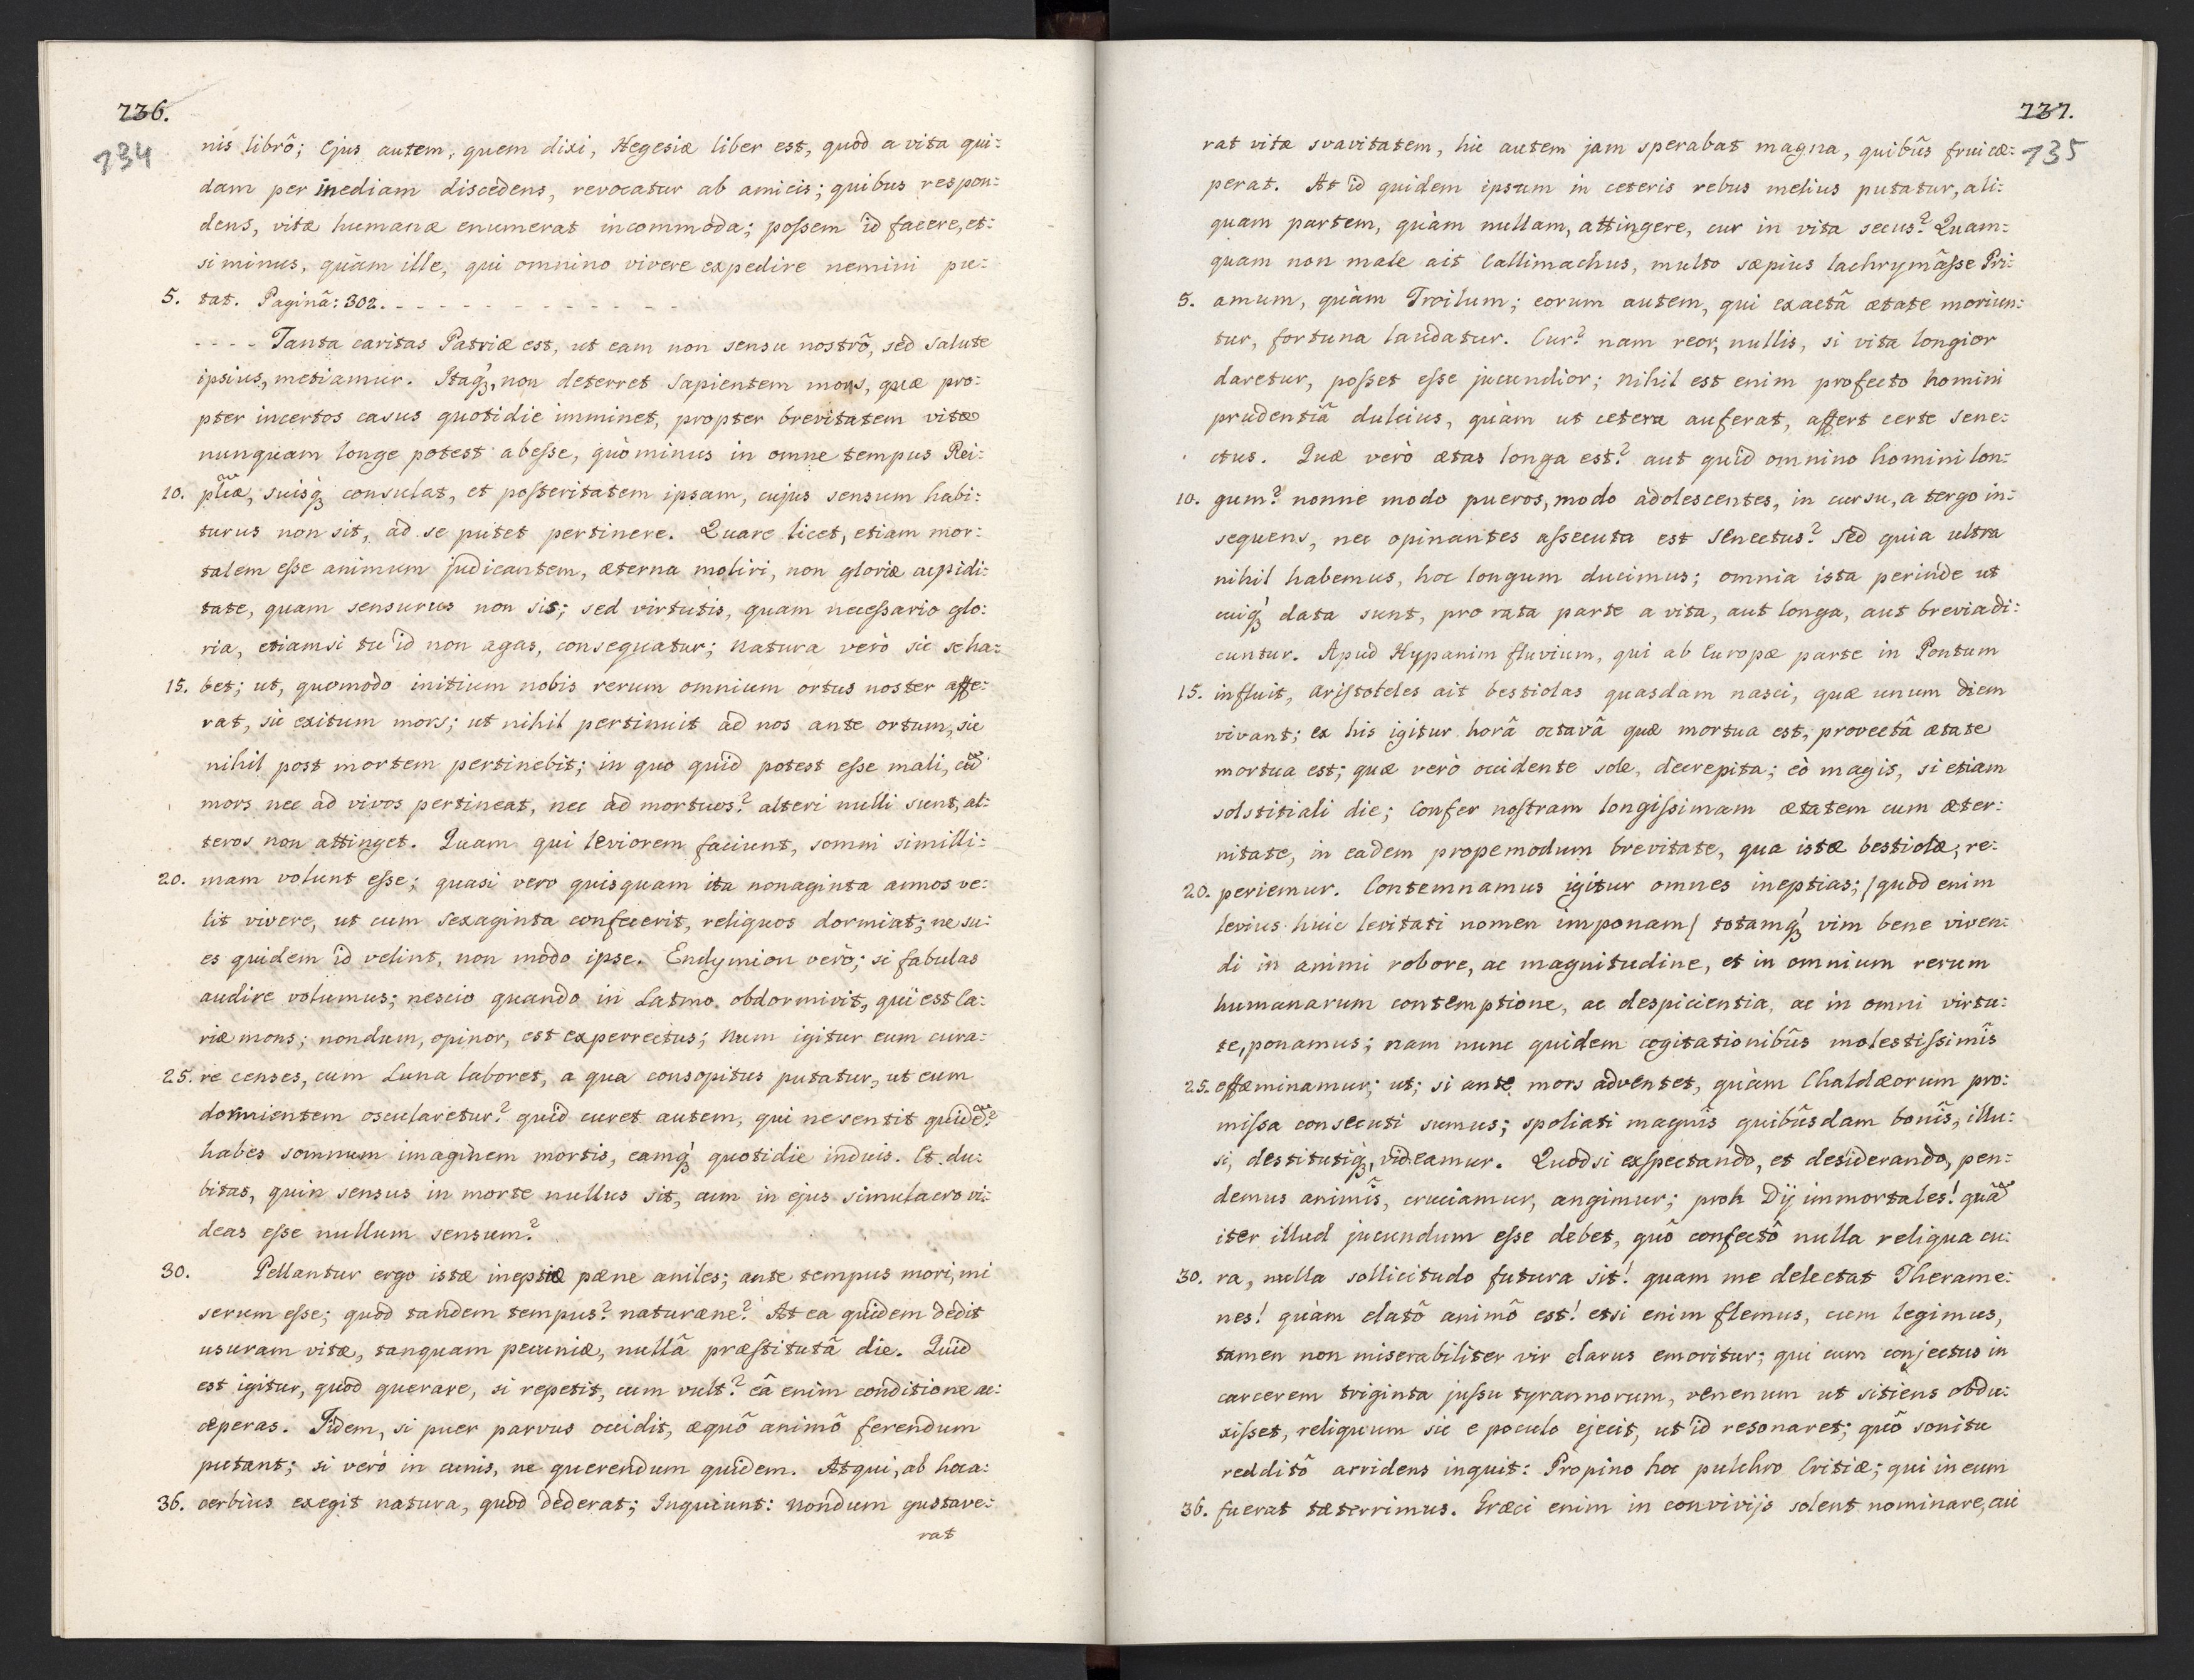 736.
134
nis librô; Ejus autem, quem dixi, Hegesiæ liber est, quod a vita qui:
dam per inediam discedens, revocatur ab amicis; quibus respon:
dens, vitæ humanæ enumerat incommoda; possem id facere, et:
si minus, quàm ille, qui omnino vivere expedire nemini pu:
5. tat. Paginâ: 302. - - - - - - - - - - - -
- - - - Tanta caritas Patriæ est, ut eam non sensu nostrô, sed salute
ipsius, metiamur. Itaq́ꝫ, non deterret sapientem mors, quæ pro:
pter incertos casus quotidie imminet, propter brevitatem vitæ
nunquam longe potest abesse, quò minus in omne tempus Rei:
10. plicæ, suisq́ꝫ consulat, et posteritatem ipsam, cujus sensum habi:
turus non sit, ad se putet pertinere. Quare licet, etiam mor:
talem esse animum judicantem, æterna moliri, non gloriæ cupidi:
tate, quam sensurus non sis; sed virtutis, quam necessario glo:
ria, etiamsi tu id non agas, consequatur; Natura verò sic se ha:
15. bet; ut, quomodo initium nobis rerum omnium ortus noster affe:
rat, sic exitum mors; ut nihil pertinuit ad nos ante ortum, sic
nihil post mortem pertinebit; in quo quid potest esse mali, cũ
mors nec ad vivos pertineat, nec ad mortuos? alteri nulli sunt, al:
teros non attinget. Quam qui leviorem faciunt, somni simili:
20. mam volunt esse; quasi vero quisquam ita nonaginta annos ve:
lit vivere, ut cum sexaginta confecerit, reliquos dormiat; ne su:
es quidem id velint, non modo ipse. Endymion verò; si fabulas
audire volumus; nescio quando in Latmo obdormivit, qui est Ca:
riæ mons; nondum, opinor, est experrectus; Num igitur eum cura:
25. re censes, cum Luna laboret, a qua consopitus putatur, ut eum
dormientem oscularetur? quid curet autem, qui ne sentit quidẽ?
habes somnum imaginem mortis, eamq́ꝫ quotidie induis. Et du:
bitas, quin sensus in morte nullus sit, cum in ejus simulacro vi:
deas esse nullum sensum?
30. Pellantur ergo istæ ineptiæ pæne aniles; ante tempus mori, mi
serum esse; quod tandem tempus? naturæne? At ea quidem dedit
usuram vitæ, tanquam pecuniæ, nullâ præstitutâ die. Quid
est igitur, quod querare, si repetit, cum vult? eâ enim conditione ac:
ceperas. Iidem, si puer parvus occidit, æquô animô ferendum
putant; si verò in cunis, ne querendum quidem. Atqui, ab hoc a:
36. cerbius exegit natura, quod dederat; Inquiunt: nondum gustave:
rat
737.
135
rat vitæ svavitatem, hic autem jam sperabat magna, quibûs frui cæ:
perat. At id quidem ipsum in ceteris rebus melius putatur, ali:
quam partem, quàm nullam, attingere, cur in vita secus? Quam:
quam non male ait Callimachus, multo sæpius lachrymâsse Pri:
5. amum, quàm Troilum; eorum autem, qui exactâ ætate moriun:
tur, fortuna laudatur. Cur? nam reor, nullis, si vita longior
daretur, posset esse jucundior; Nihil est enim profecto homini
prudentiâ dulcius, quàm ut cetera auferat, affert certe sene:
ctus. Quæ verò ætas longa est? aut quid omnino homini lon:
10. gum? nonne modo pueros, modo adolescentes, in cursu, a tergo in:
sequens, nec opinantes assecuta est senectus? Sed quia ultra
nihil habemus, hoc longum ducimus; omnia ista perinde ut
cuiq́ꝫ data sunt, pro rata parte a vita, aut longa, aut brevia di:
cuntur. Apud Hypanim fluvium, qui ab Europæ parte in Pontum
15. influit, Aristoteles ait bestiolas quasdam nasci, quæ unum diem
vivant; ex his igitur horâ octavâ quæ mortua est, provectâ ætate
mortua est; quæ verò occidente sole, decrepita; eò magis, si etiam
solstitiali die; Confer nostram longissimam ætatem cum æter:
nitate, in eadem propemodum brevitate, qua istæ bestiolæ, re:
20. periemur. Contemnamus igitur omnes ineptias; /quod enim
levius huic levitati nomen imponam/ totamq́ꝫ vim bene viven:
di in animi robore, ac magnitudine, et in omnium rerum
humanarum contemptione, ac despicientia, ac in omni virtu:
te, ponamus; nam nunc quidem cogitationibûs molestissimîs
25. effæminamur; ut; si ante mors adventet, quàm Chaldæorum pro:
missa consecuti sumus; spoliati magnîs quibûsdam bonîs, illu:
si, destitutiq́ꝫ, videamur. Quodsi exspectando, et desiderando, pen:
demus animîs, cruciamur, angimur; proh Dij immortales! quã
iter illud jucundum esse debet, quô confectô nulla reliqua cu:
30. ra, nulla sollicitudo futura sit! quam me delectat Therame:
nes! quàm elatô animô est! etsi enim flemus, cum legimus,
tamen non miserabiliter vir clarus emoritur; qui cum conjectus in
carcerem triginta jussu tyrannorum, venenum ut sitiens obdu:
xisset, reliquum sic e poculo ejecit, ut id resonaret; quô sonitu
redditô arridens inquit: Propino hoc pulchro Critiæ; qui in eum
36. fuerat tæterrimus. Græci enim in convivijs solent nominare, cui